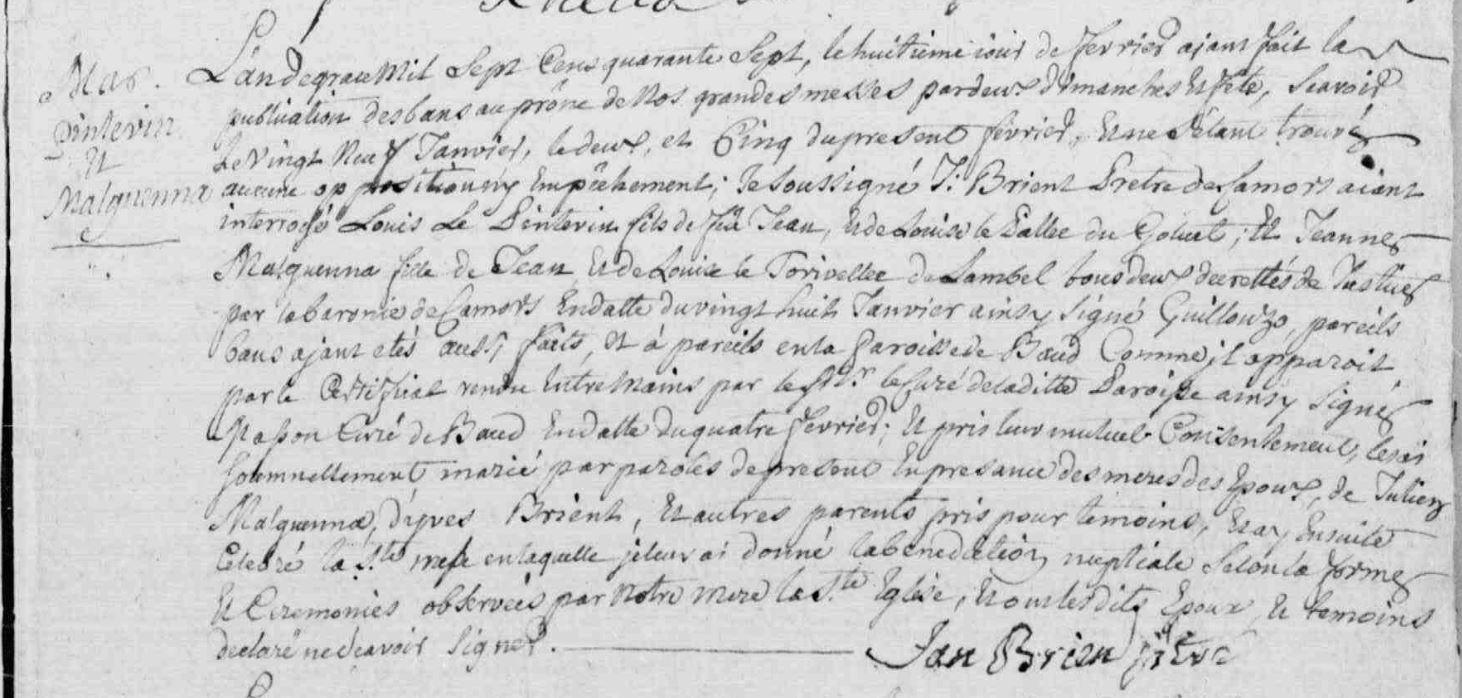 Mar.
Pintevin
Et
Malguenna
L'an de grace Mil Sept Cens quarante Sept, le huitieme iour de fevrier ajant fait la
publication des bans au prône de Nos grandes messes par deux dimanches Et fête, Scavoir
le vingt Neuf Janvier, le deux, et Cinq du present fevrier, Et ne s'etant trouvé
aucune opposition ny Empêchement; Je Soussigné J: Brient Pretre de Camors aiant
interrogé Louis Le Pintevin fils de feu Jean, Et de Louise le Pallec du Goluet; Et Jeanne
Malguenna fille de Jean Et de Louise le Torivellec de Lambel tous deux decrettés de Justice
par la baronie de Camors En datte du vingt huit Janvier ainsy Signé Guillouzo, pareils
bans ajant etés aussi faits, Et à pareils en la Paroisse de Baud Comme il apparoit
par le Certificat rendu Entre Mains par le Sr. le Curé de laditte Paroisse ainsy Signé
Masson Curé de Baud En datte du quatre fevrier; Et pris leur mutuel Consentement, les ai
solemnellement marié par paroles de present En presance des meres des Epoux, de Julien
Malguenna, d'yves Brient, Et autres parents pris pour temoins, Et ay Ensuite
Celebré la Ste messe en laquelle je leur ai donné la benediction nuptiale Selon la forme
Et Ceremonies observées par Notre mere la Ste Eglise, Et ont lesdits Epoux Et temoins
declaré ne scavoir Signer.
Jan Brien